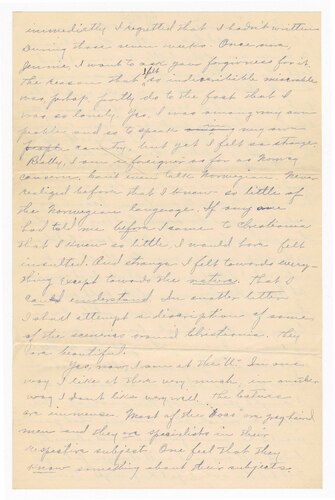 immediectly I regretted that I hadn't written
During those seven weeks. Once more,
Jennie, I want to ask your forgiveness for it.
The reason that I felt so indiscribible miserable
was, perhap, partly do to the fact that I
was so lonely. Yes, I was among my own
people, and so to speak among my own
country, but yet I felt so strange.
Really, I am a foreigner as far as Norway
concerns, can't even talk Norwegian. Never
realized before that I knew so little of
the Norwegian language. If any one
had told me before I came to Christiania
that I knew so little I would have felt
insulted. And strange I felt towards every-
thing except towards the nature. That I
could understand. In another letter
I shall attempt a discription of some
of the sceneries around Christiania. They
are beautiful!
Yes, now I am at the "U". In one
way I like it here very much, in another
way I don't like very well. The lectures
are immense. Most of the "Profs" are gray haired
men and they are specialists in their
respective subject. One feel that they
know something about their subjects.